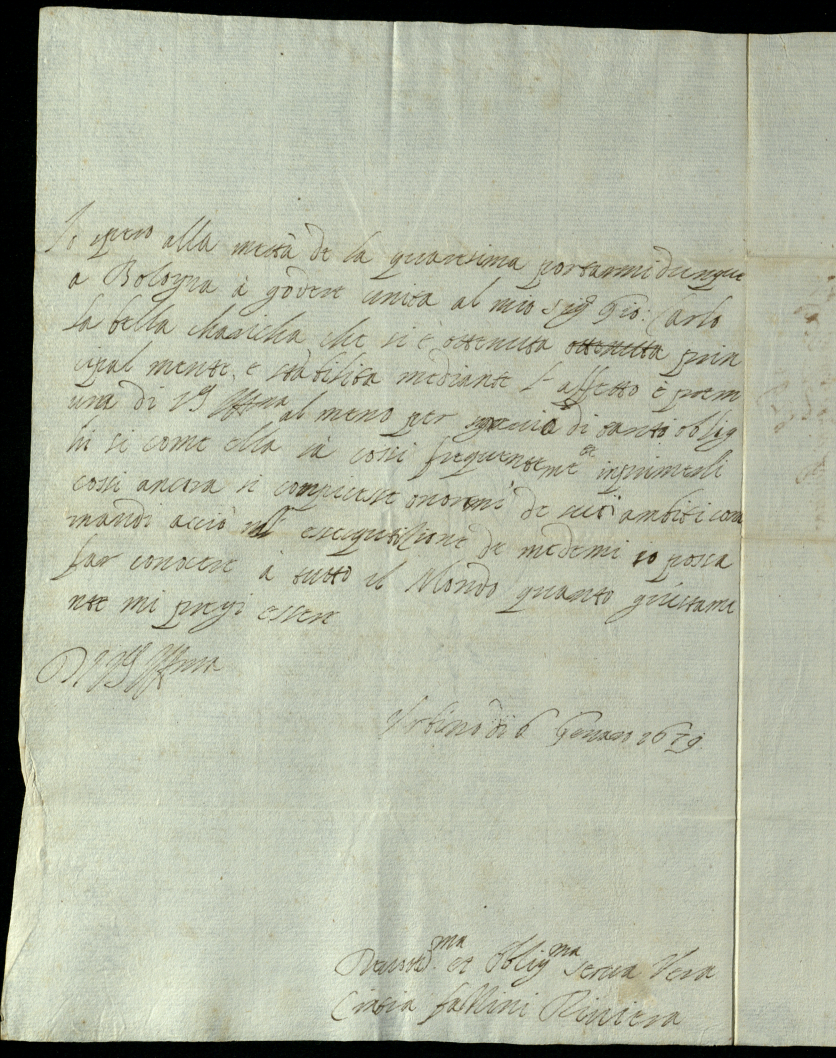 Io spero alla metà de la quaresima portarmi dunque
a Bologna à godere unita al mio Sig.r Gio: Carlo
la bella charicha che si è ottenuta ottenuta prin
cipal mente, e stabilita mediante l'affetto è prem
ura di V S Ill.ma al meno per gracia di tanti oblig
hi si come ella sà cosi frequenteme.te inprimerli
cosi ancora si conpiacese onorarmi de suoi ambiti com
mandi acciò nell' essequtizione de medemi io possa
far conoscere à tutto il Mondo quanto giustame
nte mi pregi essere
Di V S Ill.ma
Urbino di 6 Genaro 1679
Devot.ma et Oblig.ma Serva Vera
Cintia Fabrini Riviera